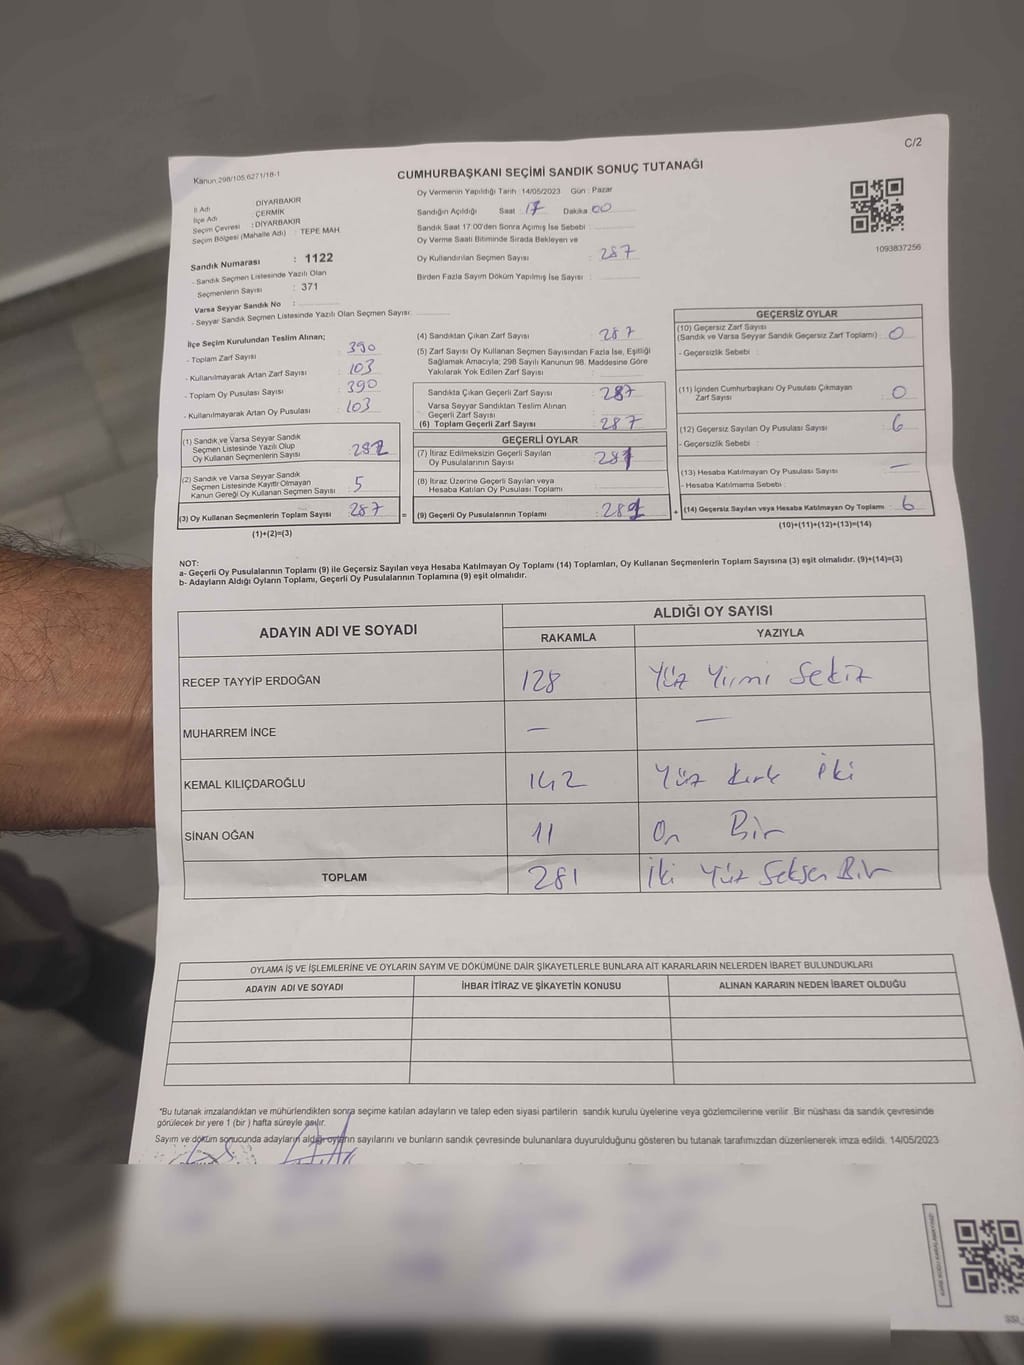 C/2
Kanun:298/105;6271/18-1
CUMHURBAŞKANI SEÇİMİ SANDIK SONUÇ TUTANAĞI
İl Adı : DİYARBAKIR
İlçe Adı : ÇERMİK
Seçim Çevresi : DİYARBAKIR
Seçim Bölgesi (Mahalle Adı) : TEPE MAH.
Sandık Numarası : 1122
- Sandık Seçmen Listesinde Yazılı Olan
Seçmenlerin Sayısı : 371
Varsa Seyyar Sandık No :
- Seyyar Sandık Seçmen Listesinde Yazılı Olan Seçmen Sayısı:
Oy Vermenin Yapıldığı Tarih : 14/05/2023 Gün : Pazar
Sandığın Açıldığı Saat : 17 Dakika 00
Sandık Saat 17:00'den Sonra Açımış İse Sebebi :
Oy Verme Saati Bitiminde Sırada Bekleyen ve
Oy Kullandırılan Seçmen Sayısı : 287
Birden Fazla Sayım Döküm Yapılmış İse Sayısı :
1093837256
İlçe Seçim Kurulundan Teslim Alınan;
- Toplam Zarf Sayısı : 390
- Kullanılmayarak Artan Zarf Sayısı : 103
- Toplam Oy Pusulası Sayısı : 390
- Kullanılmayarak Artan Oy Pusulası : 103
(1) Sandık ve Varsa Seyyar Sandık
Seçmen Listesinde Yazılı Olup
Oy Kullanan Seçmenlerin Sayısı : 282
(2) Sandık ve Varsa Seyyar Sandık
Seçmen Listesinde Kayıtlı Olmayan
Kanun Gereği Oy Kullanan Seçmen Sayısı : 5
(3) Oy Kullanan Seçmenlerin Toplam Sayısı : 287
(1)+(2)=(3)
(4) Sandıktan Çıkan Zarf Sayısı : 287
(5) Zarf Sayısı Oy Kullanan Seçmen Sayısından Fazla İse, Eşitliği
Sağlamak Amacıyla; 298 Sayılı Kanunun 98. Maddesine Göre
Yakılarak Yok Edilen Zarf Sayısı :
Sandıkta Çıkan Geçerli Zarf Sayısı : 287
Varsa Seyyar Sandıktan Teslim Alınan
Geçerli Zarf Sayısı :
(6) Toplam Geçerli Zarf Sayısı : 287
GEÇERLİ OYLAR
(7) İtiraz Edilmeksizin Geçerli Sayılan
Oy Pusulalarının Sayısı : 281
(8) İtiraz Üzerine Geçerli Sayılan veya
Hesaba Katılan Oy Pusulası Toplamı :
= (9) Geçerli Oy Pusulalarının Toplamı : 281
GEÇERSİZ OYLAR
(10) Geçersiz Zarf Sayısı
(Sandık ve Varsa Seyyar Sandık Geçersiz Zarf Toplamı) : 0
- Geçersizlik Sebebi :
(11) İçinden Cumhurbaşkanı Oy Pusulası Çıkmayan
Zarf Sayısı : 0
(12) Geçersiz Sayılan Oy Pusulası Sayısı : 6
- Geçersizlik Sebebi :
(13) Hesaba Katılmayan Oy Pusulası Sayısı : —
- Hesaba Katılmama Sebebi :
+ (14) Geçersiz Sayılan veya Hesaba Katılmayan Oy Toplamı : 6
(10)+(11)+(12)+(13)=(14)
NOT:
a- Geçerli Oy Pusulalarının Toplamı (9) ile Geçersiz Sayılan veya Hesaba Katılmayan Oy Toplamı (14) Toplamları, Oy Kullanan Seçmenlerin Toplam Sayısına (3) eşit olmalıdır. (9)+(14)=(3)
b- Adayların Aldığı Oyların Toplamı, Geçerli Oy Pusulalarının Toplamına (9) eşit olmalıdır.
ADAYIN ADI VE SOYADI ALDIĞI OY SAYISI
RAKAMLA YAZIYLA
RECEP TAYYİP ERDOĞAN 128 Yüz Yirmi Sekiz
MUHARREM İNCE — —
KEMAL KILIÇDAROĞLU 142 Yüz Kırk İki
SİNAN OĞAN 11 On Bir
TOPLAM 281 İki Yüz Seksen Bir
OYLAMA İŞ VE İŞLEMLERİNE VE OYLARIN SAYIM VE DÖKÜMÜNE DAİR ŞİKAYETLERLE BUNLARA AİT KARARLARIN NELERDEN İBARET BULUNDUKLARI
ADAYIN ADI VE SOYADI İHBAR İTİRAZ VE ŞİKAYETİN KONUSU ALINAN KARARIN NEDEN İBARET OLDUĞU
*Bu tutanak imzalandıktan ve mühürlendikten sonra seçime katılan adayların ve talep eden siyasi partilerin sandık kurulu üyelerine veya gözlemcilerine verilir .Bir nüshası da sandık çevresinde
görülecek bir yere 1 (bir ) hafta süreyle asılır.
Sayım ve döküm sonucunda adayların aldığı oyların sayılarını ve bunların sandık çevresinde bulunanlara duyurulduğunu gösteren bu tutanak tarafımızdan düzenlenerek imza edildi. 14/05/2023